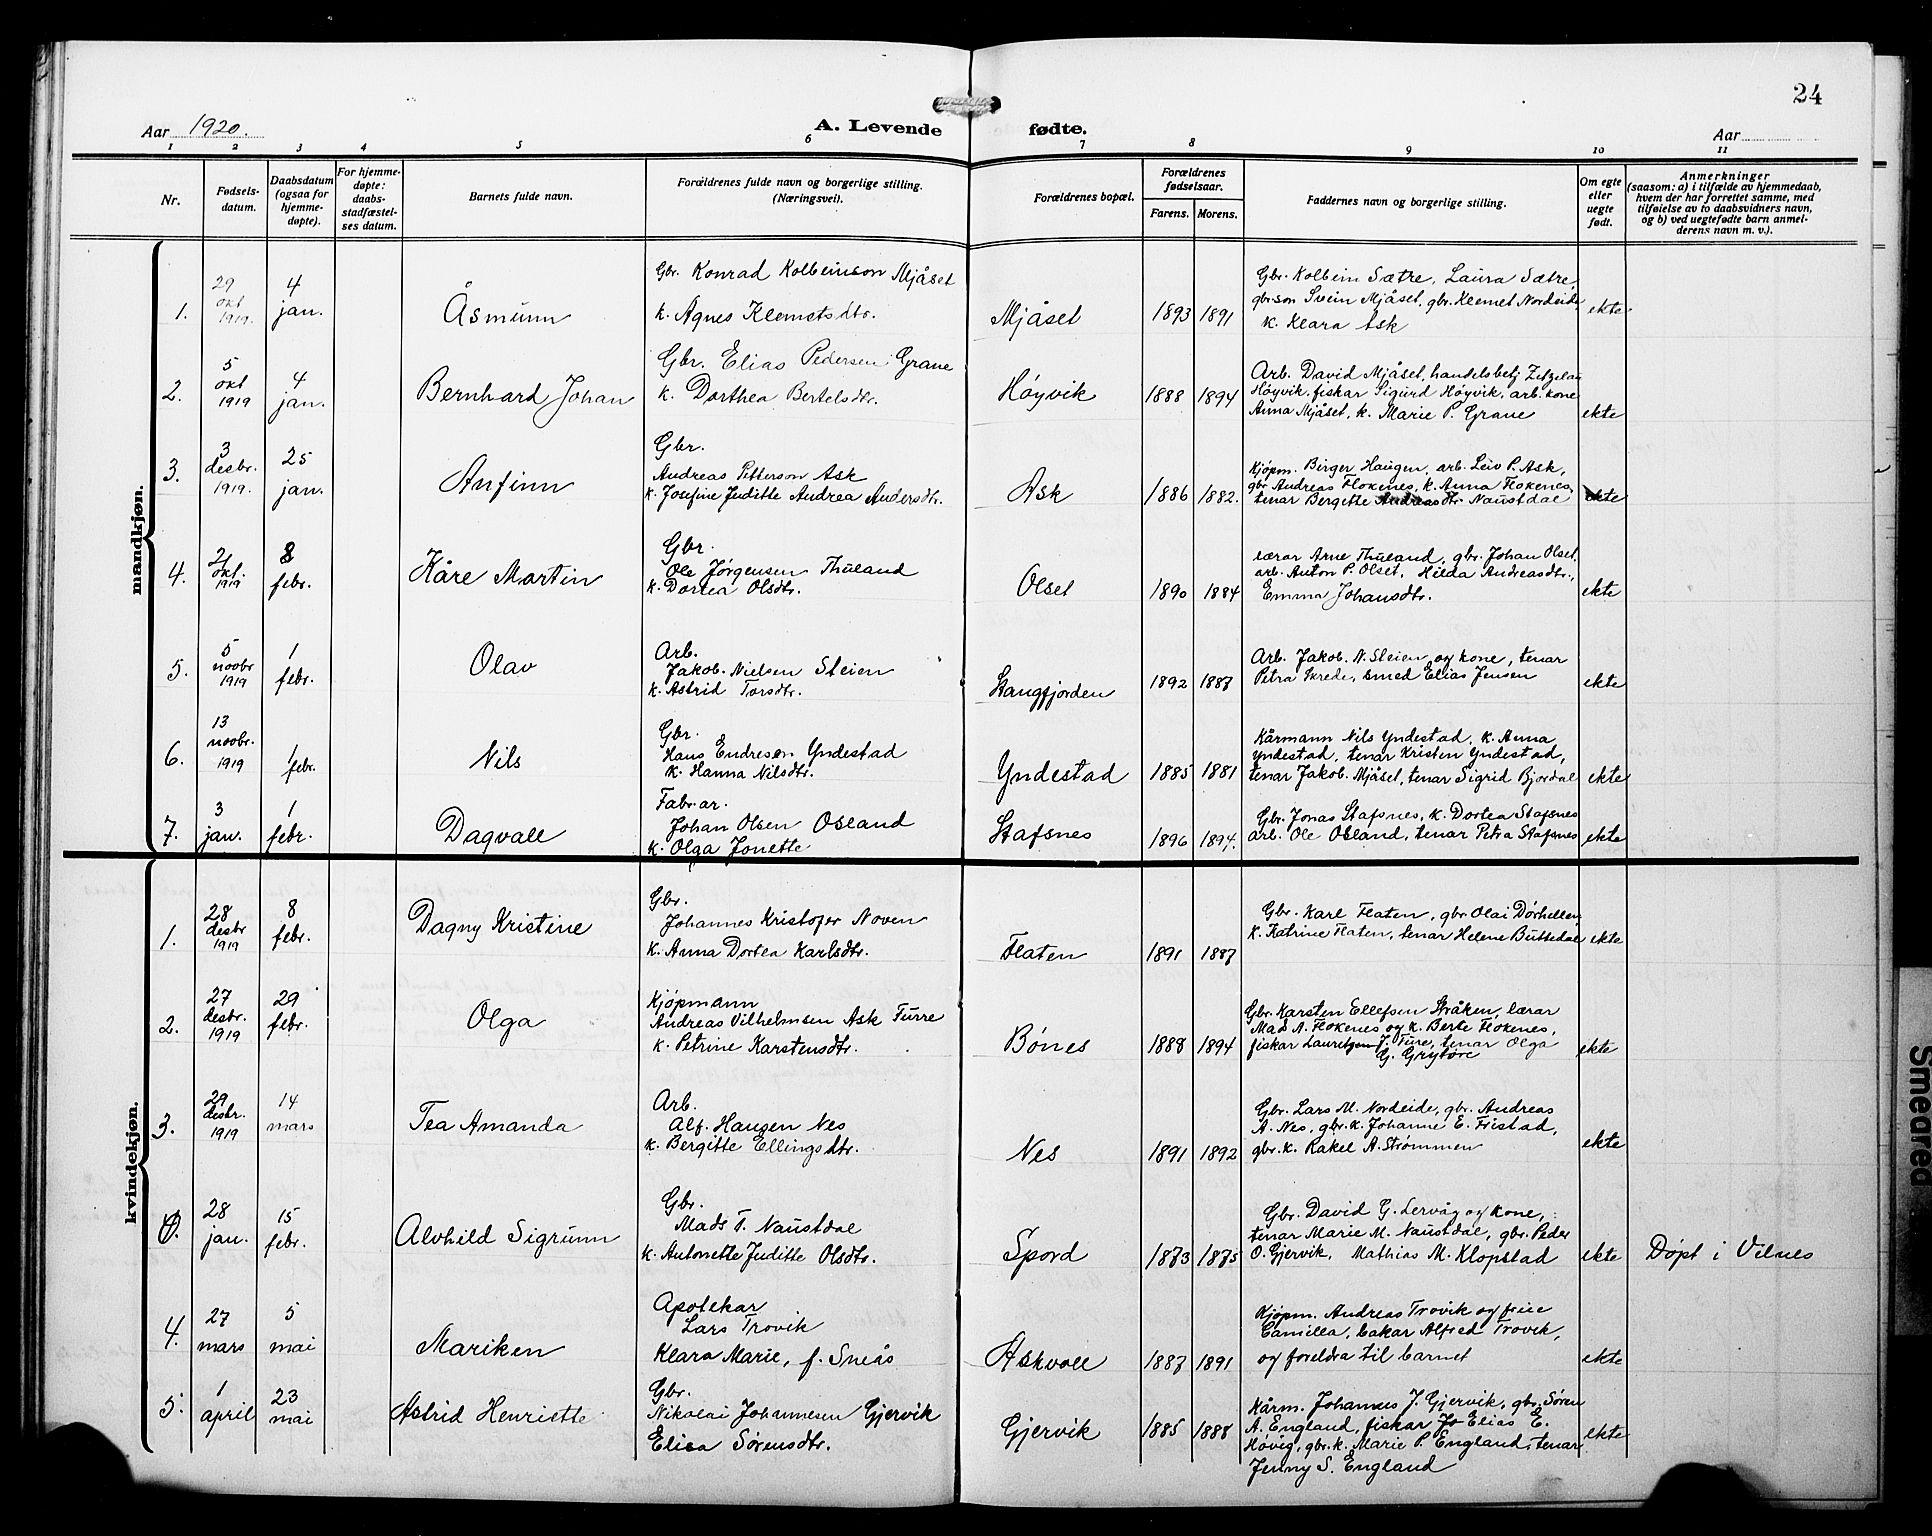 24
Aar 1920.
A. Levende fødte.
Aar
1 2 3 4 5 6 7 8 9 10 11
Nr.
Fødsels-
datum.
Daabsdatum
(ogsaa for
hjemme-
døpte).
For hjemme-
døpte:
daabs-
stadfæstel-
ses datum.
Barnets fulde navn.
Forældrenes fulde navn og borgerlige stilling.
(Næringsvei).
Forældrenes bopæl.
Forældrenes
fødselsaar.
Farens. Morens.
Faddernes navn og borgerlige stilling.
Om egte
eller
uegte
født.
Anmerkninger
(saasom: a) i tilfælde av hjemmedaab,
hvem der har forrettet samme, med
tilføielse av to daabsvidners navn,
og b) ved uegtefødte barn anmel-
derens navn m. v.).
mandkjøn.
1.
29
okt
1919.
4
jan.
Åsmunn
Gbr. Konrad Kolbeinson Mjåset
k. Agnes Klemetsdtr.
Mjåset
1893 1891
Gbr. Kolbein Sætre, Laura Sætre,
gbrson Svein Mjåset, gbr. Klemet Nordeide,
k. Klara Ask
ekte
2.
5
okt
1919
4
jan.
Bernhard Johan
Gbr. Elias Pedersen Grane
k. Dorthea Bertelsdtr.
Høyvik
1888 1894
Arb. David Mjåset, handelsbetj
Høyvik, fiskar Sigurd Høyvik, arb. kone
Anna Mjåset, k. Marie P. Grane
ekte
3.
3
desbr.
1919.
25
jan.
Anfinn
Gbr.
Andreas Petterson Ask
k. Josefine Juditte Andrea Andersdtr.
Ask
1886 1882.
Kjøpm. Birger Haugen, arb. Leiv P. Ask,
gbr Andreas Flokenes, k. Anna Flokenes,
tenar Bergitte Andreasdtr. Naustdal
ekte
4.
okt.
1919
8
febr.
Kåre Martin
Gbr.
Ole Jørgensen Thuland
k. Dortea Olsdtr.
Olset
1890 1884
lærar Arne Thuland, gbr. Johan Olset
arb. Anton P. Olset, Hilda Andreasdtr.,
Emma Johansdtr.
ekte
5.
5
novbr
1919
1
febr.
Olav
Arb.
Jakob Nielsen Steien
k. Astrid Torsdtr.
Stangfjorden
1892 1887
Arb. Jakob N. Steien og kone, tenar
Petra Skrede, smed Elias Jensen
ekte
6.
13
novbr.
1919
1
febr.
Nils
Gbr.
Hans Endresen Yndestad
k. Hanna Nilsdtr.
Yndestad
1885 1881
Kårmann Nils Yndestad, k. Anna
Yndestad, tenar Kristen Yndestad,
tenar Jakob Mjåset, tenar Sigrid Bjordal
ekte
7.
3
jan.
1
febr.
Dagvall
Fabr.ar.
Johan Olsen Osland
k. Olga Jonette
Stafsnes
1896 1894.
Gbr. Jonas Stafsnes, k. Dortea Stafsnes
arb. Ole Osland, tenar Petra Stafsnes
ekte
kvindekjøn.
1.
28
desbr
1919
8
febr.
Dagny Kristine
Gbr.
Johannes Kristofer Noven
k. Anna Dortea Karlsdtr.
Flaten
1891 1887
Gbr. Karl Flaten, gbr Olai Dørhellen
k. Katrine Flaten, tenar Helene Buttedal
ekte
2.
27
desbr.
1919
29
febr.
Olga
Kjøpmann
Andreas Vilhelmsen Ask Furre
k. Petrine Karstensdtr.
Bønes
1888 1894
Gbr. Karsten Ellefsen Stråken, lærar
Mads A. Flokenes og k. Berte Flokenes,
fiskar J. Fure, tenar Olga
G. Grytøre
ekte
3.
29
desbr.
1919
14
mars
Tea Amanda
Arb.
Alf. Hansen Nes
k. Bergitte Ellingsdtr.
Nes
1891 1892
Gbr. Lars M. Nordeide, gbr. Andreas
A. Nes, gbr. k. Johanne E. Fristad,
gbr. k. Rakel A. Strømmen
ekte
0.
28
jan.
15
febr.
Alvhild Sigrunn
Gbr.
Mads T. Naustdal
k. Antonette Juditte Olsdtr.
Spord
1873 1875
Gbr. David G. Lervåg og kone,
tenar Marie M. Naustdal, gbr. Peder
O. Gjervik, Mathias M. Klopstad
ekte
Døpt i Vilnes
4.
27
mars
5
mai
Mariken
Apotekar
Lars Trovik
Klara Marie, f. Sneås
Askvoll
1887 1891
Kjøpm. Andreas Trovik og frue
Camilla, bakar Alfred Trovik,
og foreldra til barnet
ekte
5.
1
april
23
mai
Astrid Henriette
Gbr.
Nikolai Johannesen Gjervik
Elisa Sørensdtr.
Gjervik
1885 1888
Kårm. Johannes J. Gjervik, gbr. Søren
A. England, fiskar Jo Elias E.
Høvig, gbr. k. Marie P. England, tenar
Jenny S. England
ekte
Smeared